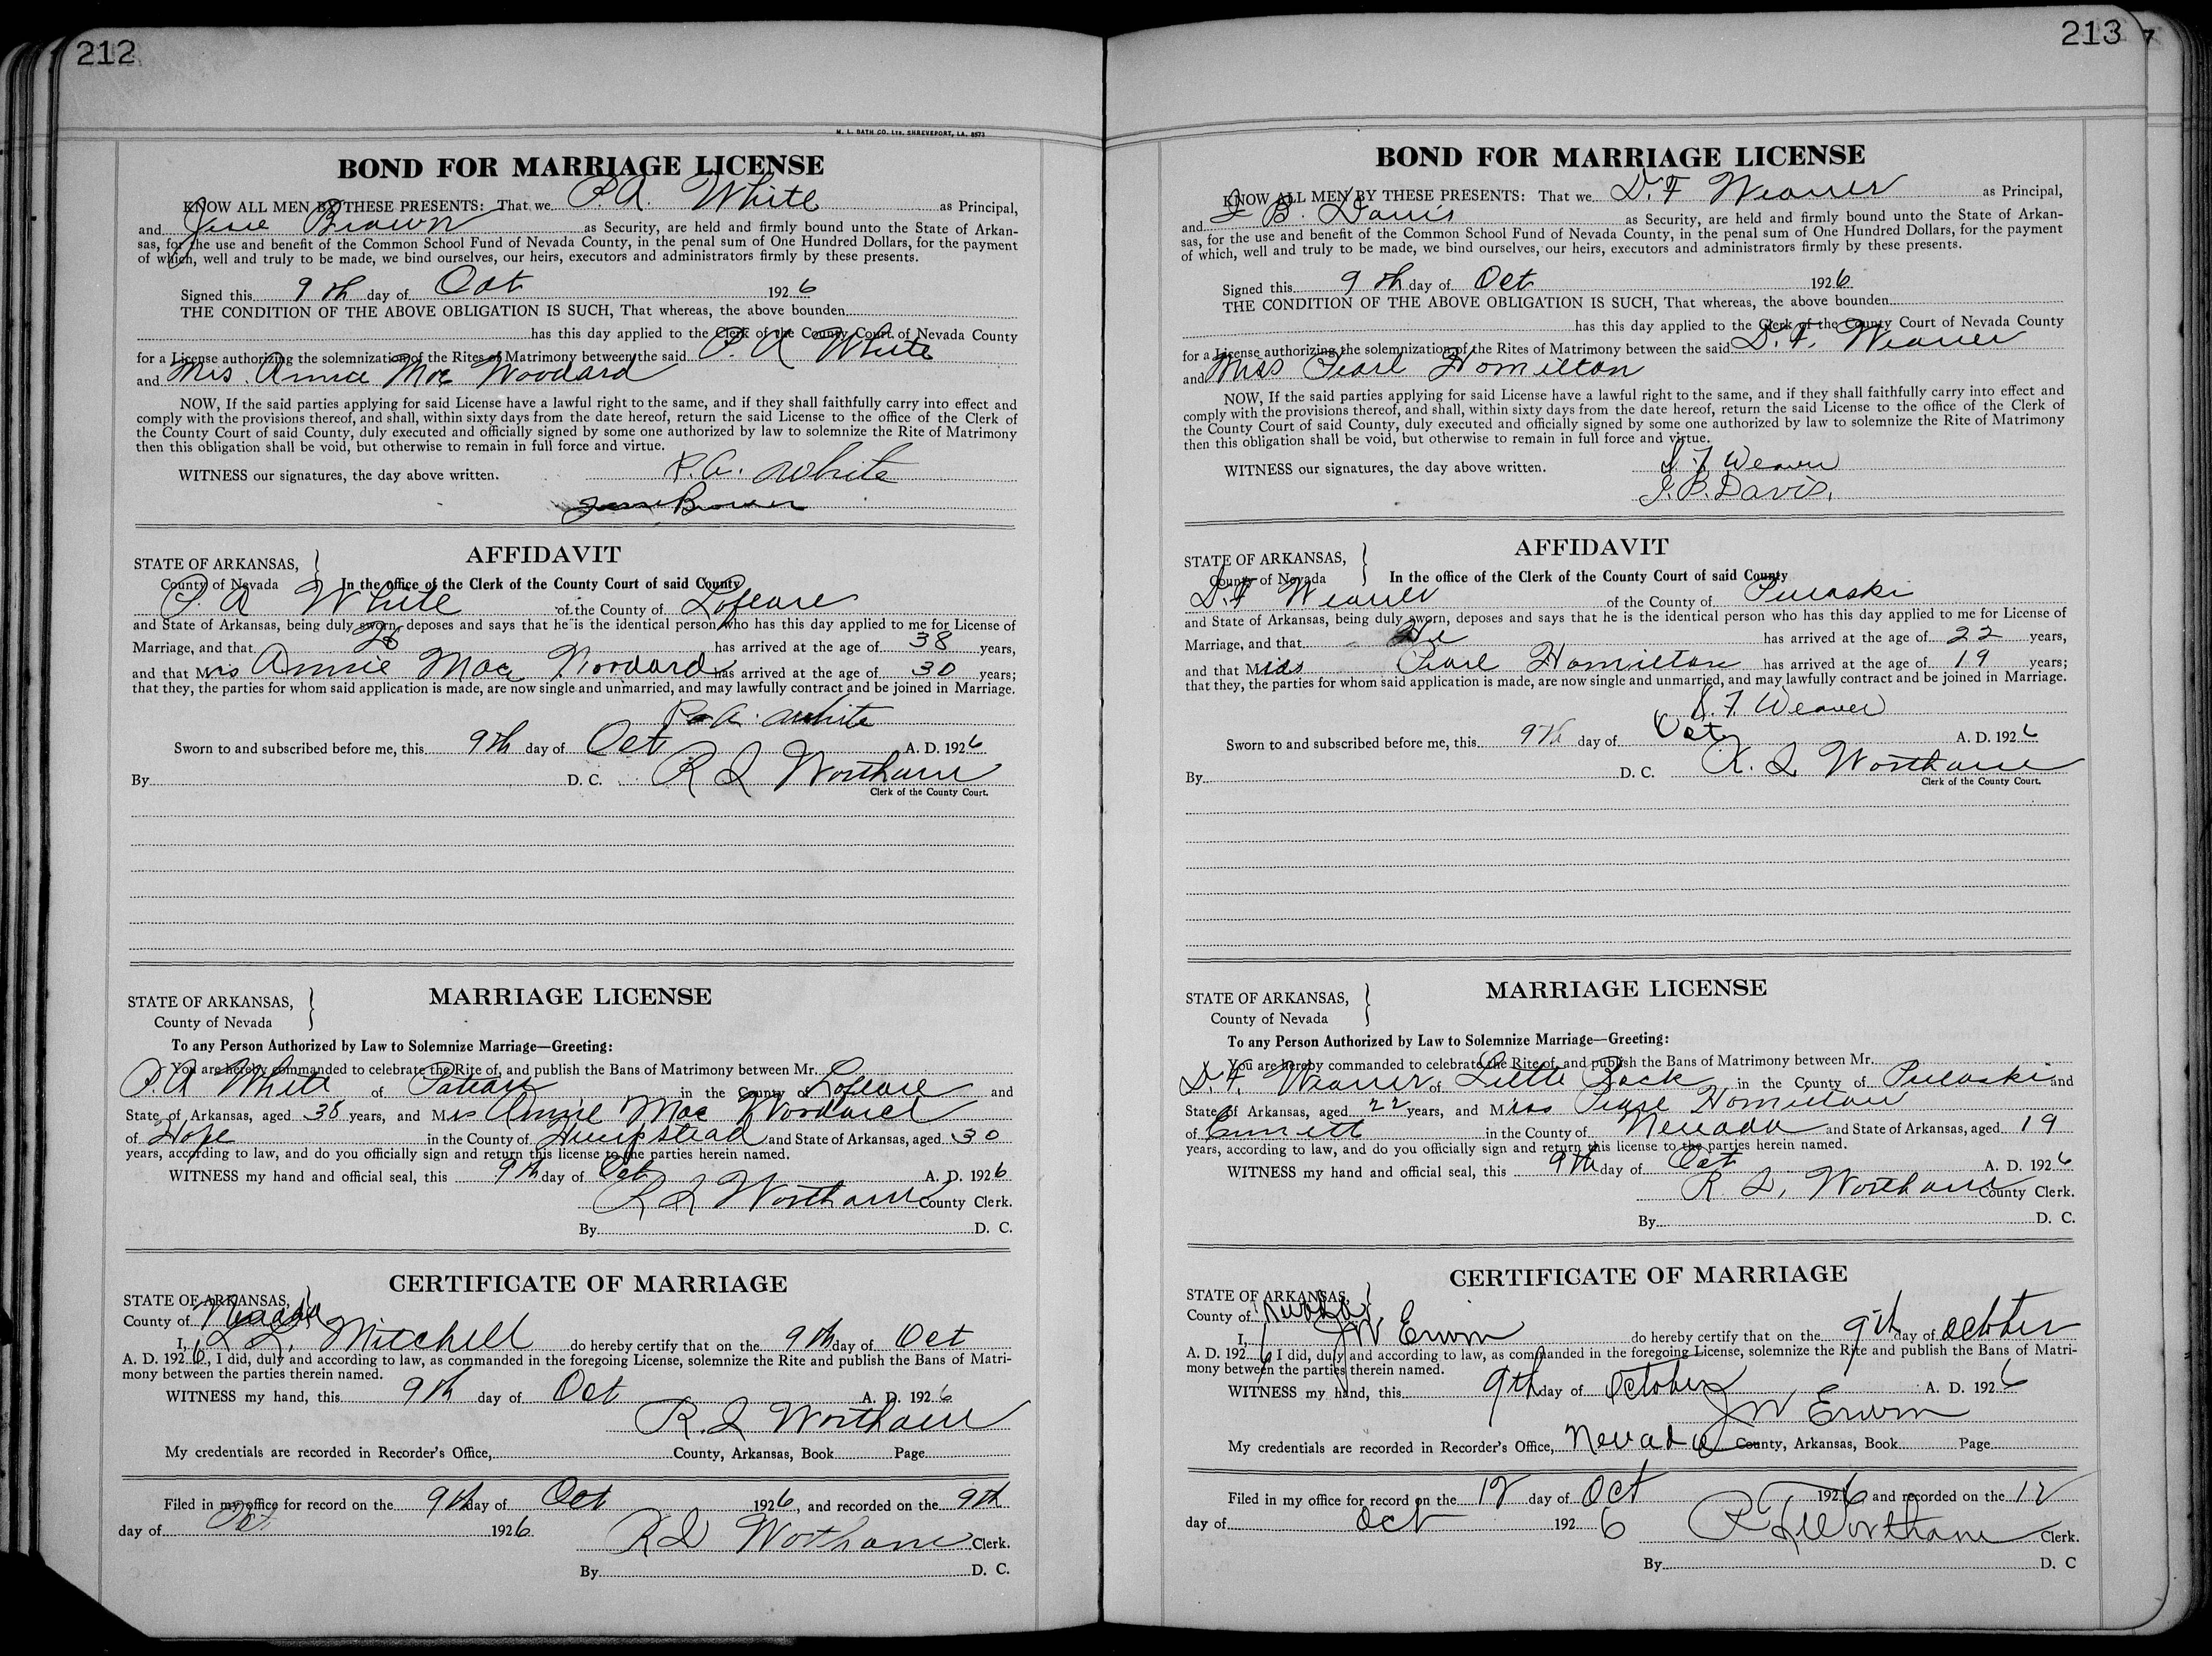 212
M. L. BATH CO. LTD. SHREVEPORT, LA. 8573
BOND FOR MARRIAGE LICENSE
KNOW ALL MEN BY THESE PRESENTS: That we P.A. White as Principal,
and Jese Brown as Security, are held and firmly bound unto the State of Arkan-
sas, for the use and benefit of the Common School Fund of Nevada County, in the penal sum of One Hundred Dollars, for the payment
of which, well and truly to be made, we bind ourselves, our heirs, executors and administrators firmly by these presents.
Signed this 9th day of Oct 1926
THE CONDITION OF THE ABOVE OBLIGATION IS SUCH, That whereas, the above bounden
has this day applied to the Clerk of the County Court of Nevada County
for a License authorizing the solemnization of the Rites of Matrimony between the said P. A White
and Mrs. Annie Mae Woodard
NOW, If the said parties applying for said License have a lawful right to the same, and if they shall faithfully carry into effect and
comply with the provisions thereof, and shall, within sixty days from the date hereof, return the said License to the office of the Clerk of
the County Court of said County, duly executed and officially signed by some one authorized by law to solemnize the Rite of Matrimony
then this obligation shall be void, but otherwise to remain in full force and virtue.
WITNESS our signatures, the day above written. P.A. White
Brown
AFFIDAVIT
STATE OF ARKANSAS,
County of Nevada In the office of the Clerk of the County Court of said County
P. A White of the County of Lafeare
and State of Arkansas, being duly sworn, deposes and says that he is the identical person who has this day applied to me for License of
Marriage, and that he has arrived at the age of 38 years,
and that Mrs Annie Mae Woodard has arrived at the age of 30 years;
that they, the parties for whom said application is made, are now single and unmarried, and may lawfully contract and be joined in Marriage.
P.A. White
Sworn to and subscribed before me, this 9th day of Oct A. D. 1926
By D. C. R L Wortham
Clerk of the County Court.
MARRIAGE LICENSE
STATE OF ARKANSAS,
County of Nevada
To any Person Authorized by Law to Solemnize Marriage—Greeting:
You are hereby commanded to celebrate the Rite of, and publish the Bans of Matrimony between Mr.
P.A White of in the County of Lafeare and
State of Arkansas, aged 38 years, and Mrs Annie Mae Woodard
of Hope in the County of Hempstead and State of Arkansas, aged 30
years, according to law, and do you officially sign and return this license to the parties herein named.
WITNESS my hand and official seal, this 9th day of Oct A. D. 1926
R L Wortham County Clerk.
By D. C.
CERTIFICATE OF MARRIAGE
STATE OF ARKANSAS,
County of Nevada
I, L L. Mitchell do hereby certify that on the 9th day of Oct
A. D. 1926, I did, duly and according to law, as commanded in the foregoing License, solemnize the Rite and publish the Bans of Matri-
mony between the parties therein named.
WITNESS my hand, this 9th day of Oct A. D. 1926
R.L Wortham
My credentials are recorded in Recorder's Office, County, Arkansas, Book Page
Filed in my office for record on the 9th day of Oct 1926, and recorded on the 9th
day of Oct 1926 R L Wortham Clerk.
By D. C.
213
BOND FOR MARRIAGE LICENSE
KNOW ALL MEN BY THESE PRESENTS: That we D. F Weaver as Principal,
and J B. Davis as Security, are held and firmly bound unto the State of Arkan-
sas, for the use and benefit of the Common School Fund of Nevada County, in the penal sum of One Hundred Dollars, for the payment
of which, well and truly to be made, we bind ourselves, our heirs, executors and administrators firmly by these presents.
Signed this 9th day of Oct 1926
THE CONDITION OF THE ABOVE OBLIGATION IS SUCH, That whereas, the above bounden
has this day applied to the Clerk of the County Court of Nevada County
for a License authorizing the solemnization of the Rites of Matrimony between the said D. F. Weaver
and Miss Pearl Hamilton
NOW, If the said parties applying for said License have a lawful right to the same, and if they shall faithfully carry into effect and
comply with the provisions thereof, and shall, within sixty days from the date hereof, return the said License to the office of the Clerk of
the County Court of said County, duly executed and officially signed by some one authorized by law to solemnize the Rite of Matrimony
then this obligation shall be void, but otherwise to remain in full force and virtue.
WITNESS our signatures, the day above written. D. F Weaver
J. B. Davis.
AFFIDAVIT
STATE OF ARKANSAS,
County of Nevada In the office of the Clerk of the County Court of said County
D. F Weaver of the County of Pulaski
and State of Arkansas, being duly sworn, deposes and says that he is the identical person who has this day applied to me for License of
Marriage, and that He has arrived at the age of 22 years,
and that Miss Pearl Hamilton has arrived at the age of 19 years;
that they, the parties for whom said application is made, are now single and unmarried, and may lawfully contract and be joined in Marriage.
D. F Weaver
Sworn to and subscribed before me, this 9th day of Oct A. D. 1926
By D. C. R. L Wortham
Clerk of the County Court.
MARRIAGE LICENSE
STATE OF ARKANSAS,
County of Nevada
To any Person Authorized by Law to Solemnize Marriage—Greeting:
You are hereby commanded to celebrate the Rite of, and publish the Bans of Matrimony between Mr.
D. F. Weaver of Little Rock in the County of Pulaski and
State of Arkansas, aged 22 years, and Miss Pearl Hamilton
of Emmett in the County of Nevada and State of Arkansas, aged 19
years, according to law, and do you officially sign and return this license to the parties herein named.
WITNESS my hand and official seal, this 9th day of Oct A. D. 1926
R. L. Wortham County Clerk.
By D. C.
CERTIFICATE OF MARRIAGE
STATE OF ARKANSAS,
County of Nevada
I, J W Erwin do hereby certify that on the 9th day of October
A. D. 1926 I did, duly and according to law, as commanded in the foregoing License, solemnize the Rite and publish the Bans of Matri-
mony between the parties therein named.
WITNESS my hand, this 9th day of October A. D. 1926
J W Erwin
My credentials are recorded in Recorder's Office, Nevada County, Arkansas, Book Page
Filed in my office for record on the 12 day of Oct 1926 and recorded on the 12
day of Oct 1926 R L Wortham Clerk.
By D. C